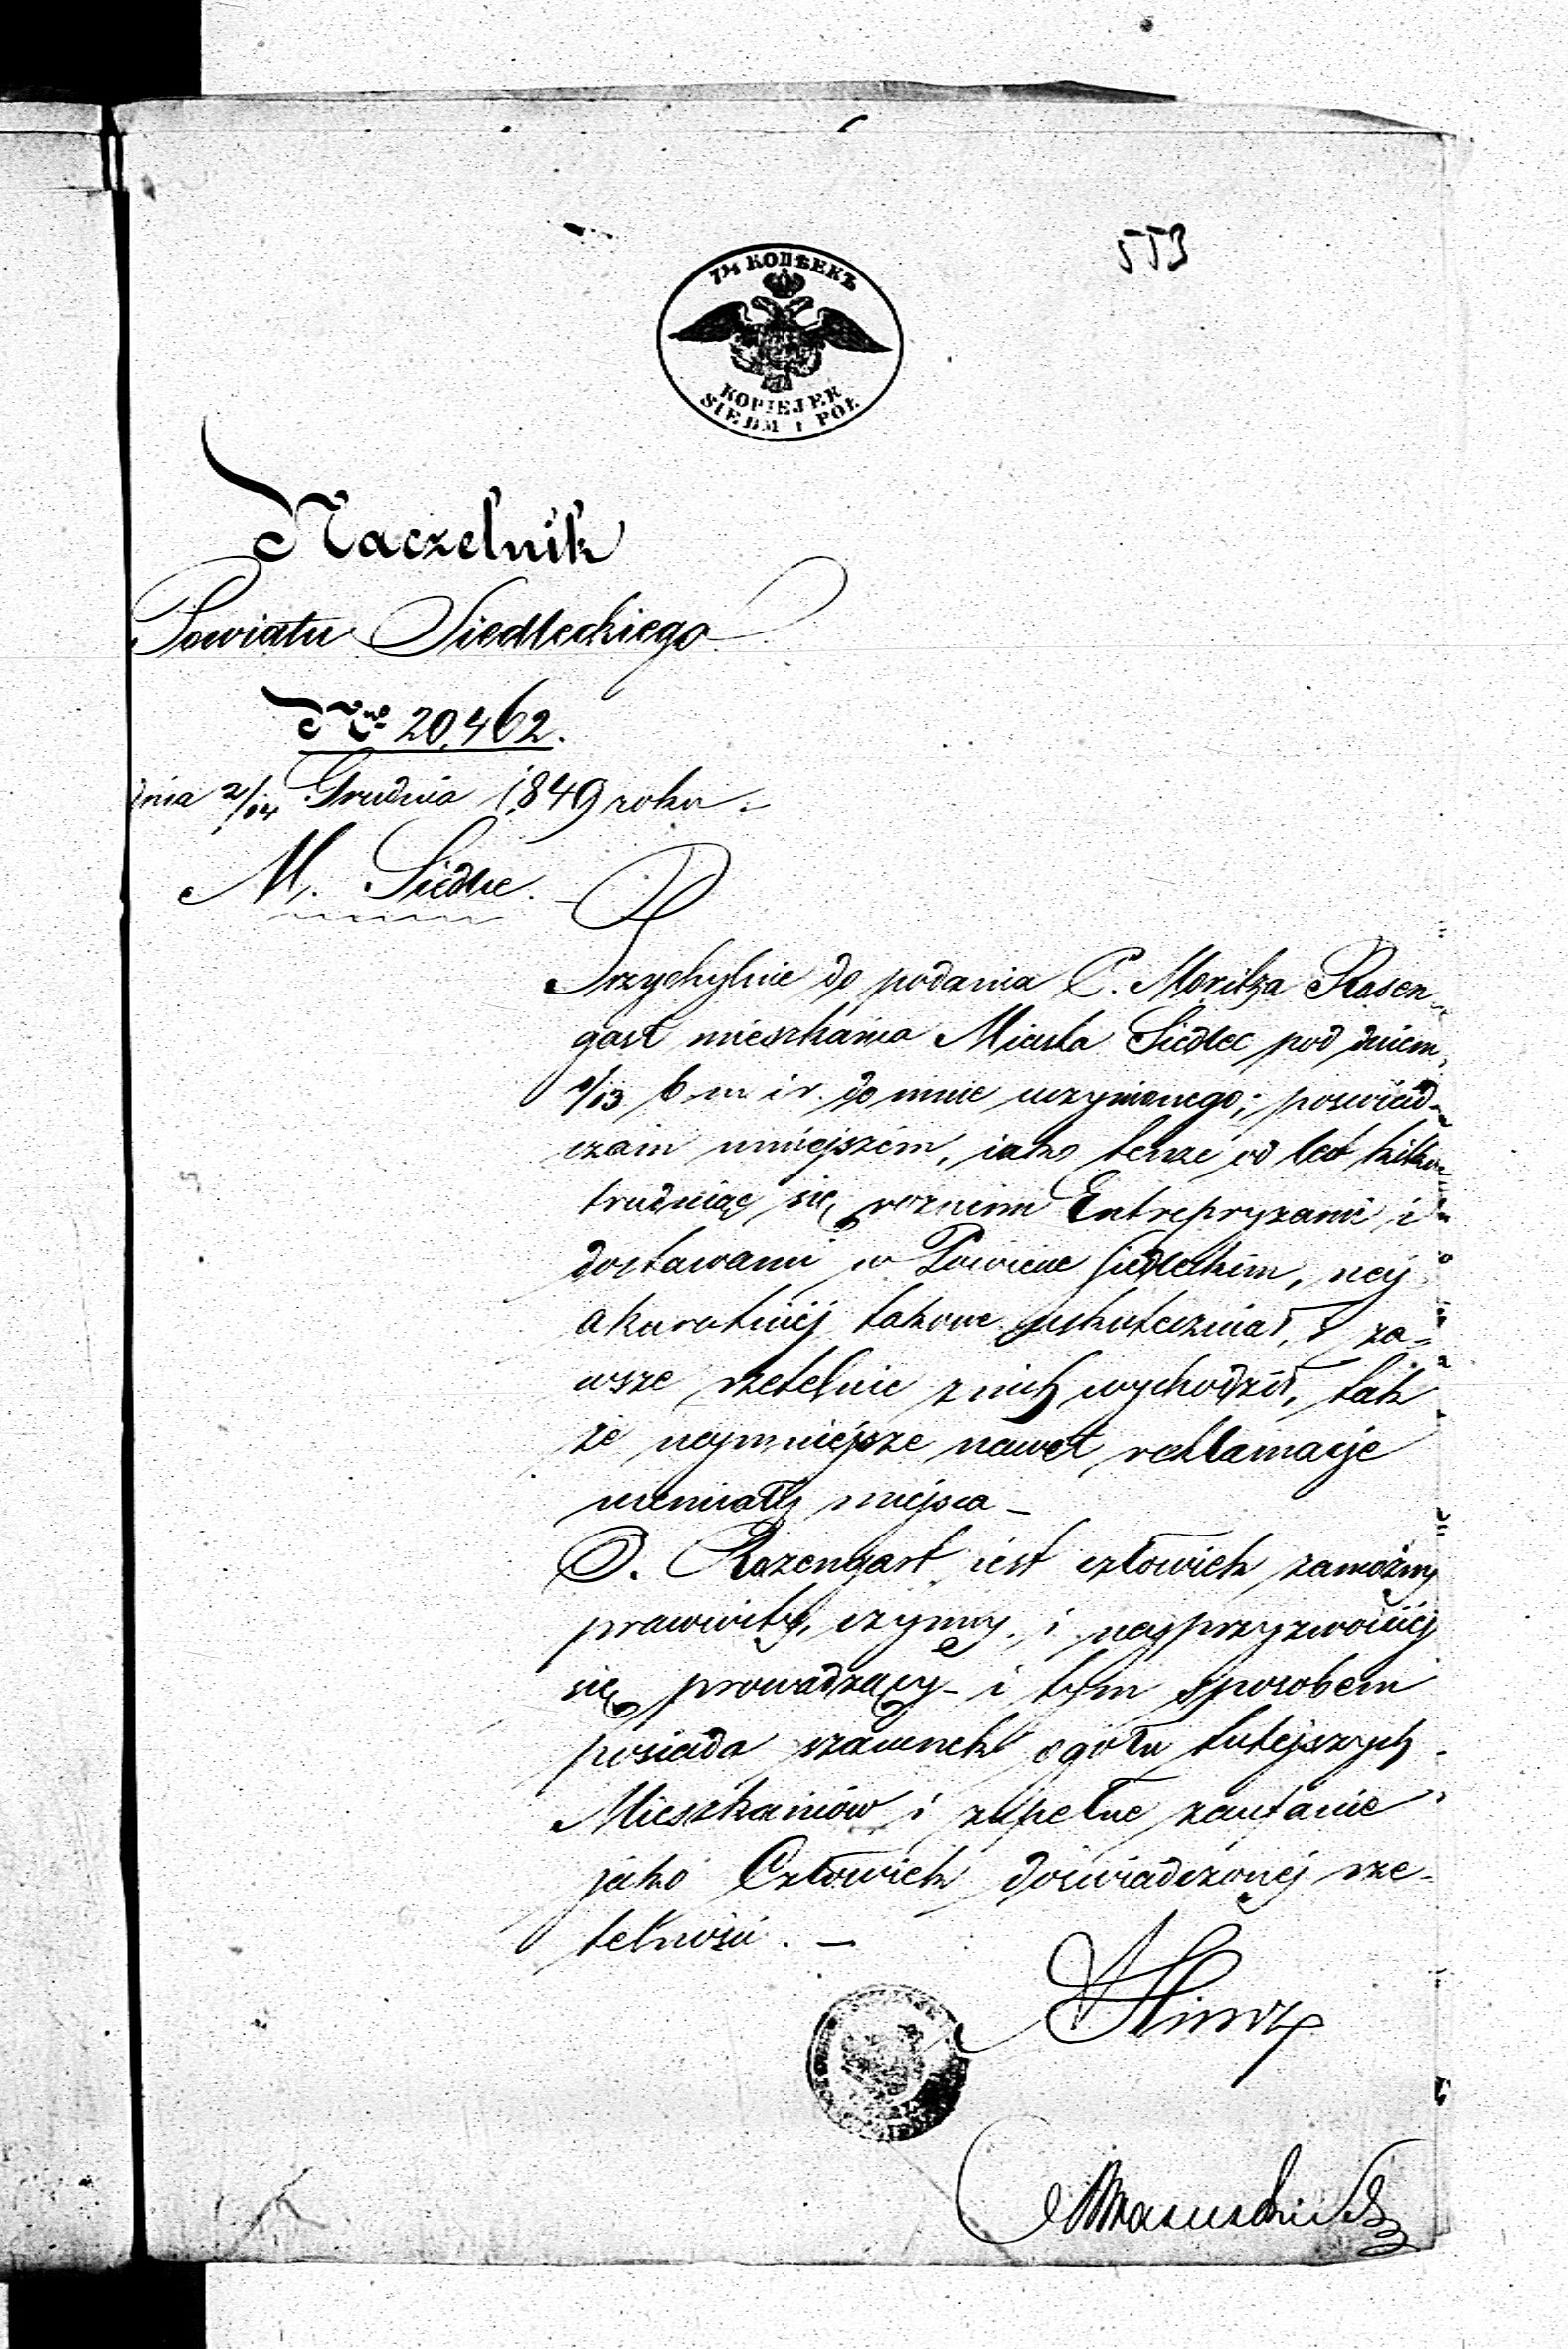 553
7½ КОПѢЕКЪ
KOPIEJEK
SIEDM I PÓŁ
Naczelnik
Powiatu Siedleckiego
Nro 20,462.
dnia 2/14 Grudnia 1849 roku.
M. Siedlce.
Przychylnie do podania P. Moritza Rosen
gart mieszkańca Miasta Siedlec pod dniem
1/13 b m i r. do mnie uczynionego; poswiad-
czam niniejszém, iako tenże od lat kilku
trudniąc się roznemi Entrepryzami i
dostawami w Powiecie Siedleckim, nay
akuratniéj takowe uskuteczniał, i za-
wsze rzetelnie z nich wychodził, tak
że naymniejsze nawet reklamacje
niemiały miejsca –
P. Rozengart iest człowiek zamożny
prawowity, czynny, i nayprzyzwoiciéj
się prowadzący – i tym sposobem
posiada szacunek ogółu tutejszych
Mieszkańców i zupełne zaufanie
jako Człowiek doświadczonéj rze-
telności. –